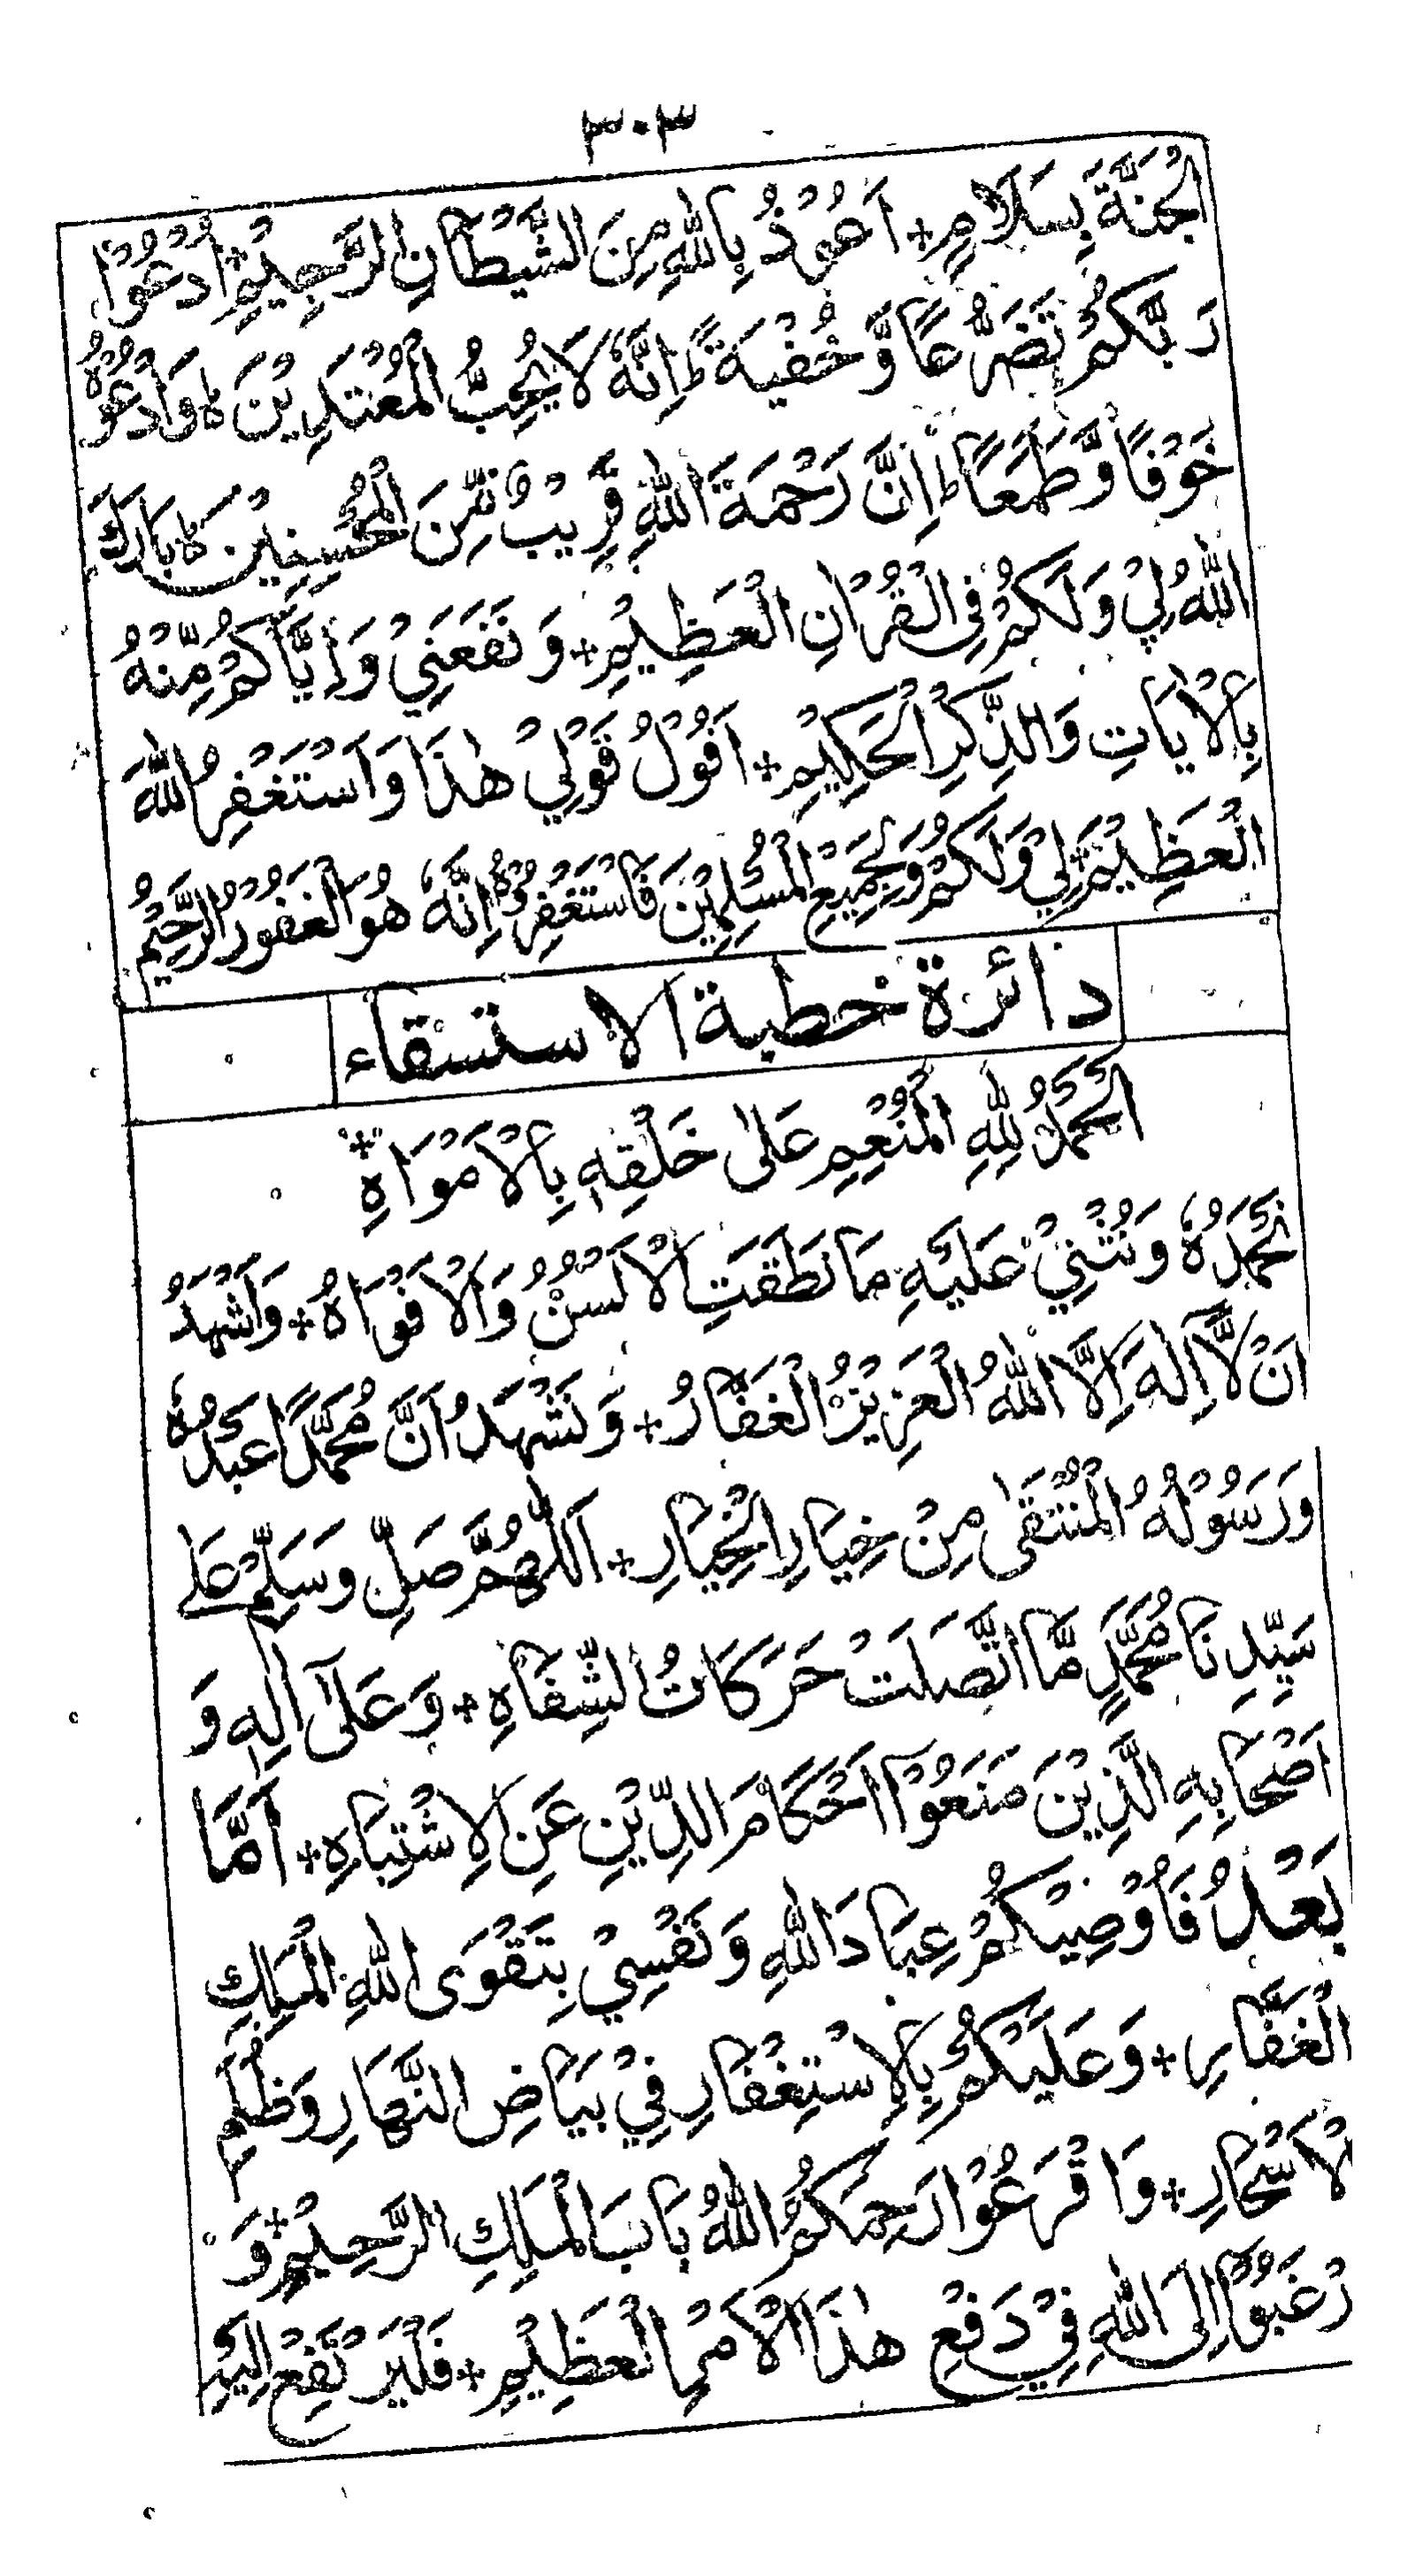 ٣٠٣
الْجَنَّةَ بِسَلَامٍ + اَعُوْذُ بِاللّٰهِ مِنَ الشَّيْطَانِ الرَّجِيْمِ + اُدْعُوْا
رَبَّكُمْ تَضَرُّعًا وَّخُفْيَةً ط اِنَّهٗ لَا يُحِبُّ الْمُعْتَدِيْنَ ہ وَادْعُوْهُ
خَوْفًا وَّطَمَعًا ط اِنَّ رَحْمَةَ اللّٰهِ قَرِيْبٌ مِّنَ الْمُحْسِنِيْنَ ہ بَارَكَ
اللّٰهُ لِيْ وَلَكُمْ فِى الْقُرْاٰنِ الْعَظِيْمِ + وَنَفَعَنِيْ وَاِيَّاكُمْ مِّنْهُ
بِالْاٰيَاتِ وَالذِّكْرِ الْحَكِيْمِ + اَقُوْلُ قَوْلِيْ هٰذَا وَاَسْتَغْفِرُ اللّٰهَ
الْعَظِيْمَ لِيْ وَلَكُمْ وَلِجَمِيْعِ الْمُسْلِمِيْنَ فَاسْتَغْفِرُوْهُ اِنَّهٗ هُوَ الْغَفُوْرُ الرَّحِيْمُ
دائرة خطبة الاستسقاء
اَلْحَمْدُ لِلّٰهِ الْمُنْعِمِ عَلٰى خَلْقِهٖ بِالْاَمْوَاهِ +
نَحْمَدُهٗ وَنُثْنِيْ عَلَيْهِ مَا نَطَقَتِ الْاَلْسُنُ وَالْاَفْوَاهُ + وَاَشْهَدُ
اَنْ لَّا اِلٰهَ اِلَّا اللّٰهُ الْعَزِيْزُ الْغَفَّارُ + وَنَشْهَدُ اَنَّ مُحَمَّدًا عَبْدُهٗ
وَرَسُوْلُهُ الْمُنْتَقٰى مِنْ خِيَارِ الْخِيَارِ + اَللّٰهُمَّ صَلِّ وَسَلِّمْ عَلٰے
سَيِّدِنَا مُحَمَّدٍ مَّا اتَّصَلَتْ حَرَكَاتُ الشِّفَاهِ + وَعَلٰٓى اٰلِهٖ وَ
اَصْحَابِهِ الَّذِيْنَ مَنَعُوْا اَحْكَامَ الدِّيْنِ عَنِ الْاِشْتِبَاهِ + اَمَّا
بَعْدُ فَاُوْصِيْكُمْ عِبَادَ اللّٰهِ وَنَفْسِيْ بِتَقْوَى اللّٰهِ الْمَلِكِ
الْغَفَّارِ + وَعَلَيْكُمْ بِالْاِسْتِغْفَارِ فِيْ بَيَاضِ النَّهَارِ وَظُلَمِ
الْاَسْحَارِ + وَاقْرَعُوْا رَحِمَكُمُ اللّٰهُ بَابَ الْمَلِكِ الرَّحِيْمِ + وَ
ارْغَبُوْا اِلَى اللّٰهِ فِيْ دَفْعِ هٰذَا الْاَمْرِ الْعَظِيْمِ + فَلْيَرْتَفِعْ اِلَيْهِ